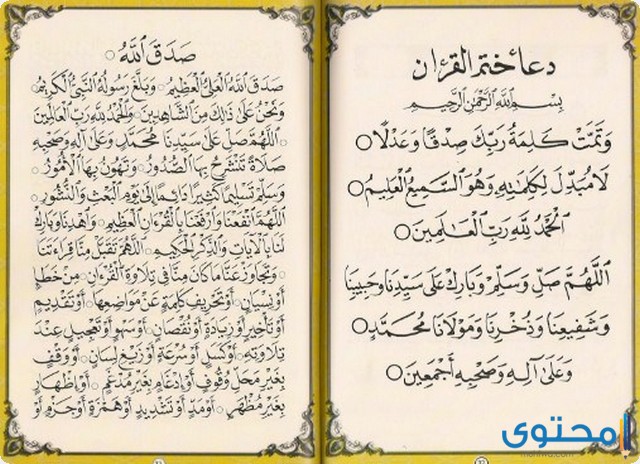 دعاء ختم القرءان
بِسْمِ اللَّهِ الرَّحْمَنِ الرَّحِيمِ
وَتَمَّتْ كَلِمَةُ رَبِّكَ صِدْقًا وَعَدْلًا
لَا مُبَدِّلَ لِكَلِمَاتِهِ وَهُوَ السَّمِيعُ الْعَلِيمُ
الْحَمْدُ لِلَّهِ رَبِّ الْعَالَمِينَ
اللَّهُمَّ صَلِّ وَسَلِّمْ وَبَارِكْ عَلَى سَيِّدِنَا وَحَبِيبِنَا
وَشَفِيعِنَا وَذُخْرِنَا وَمَوْلَانَا مُحَمَّدٍ
وَعَلَى آلِهِ وَصَحْبِهِ أَجْمَعِينَ
صَدَقَ اللَّهُ
صَدَقَ اللَّهُ الْعَلِيُّ الْعَظِيمُ وَبَلَّغَ رَسُولُهُ النَّبِيُّ الْكَرِيمُ
وَنَحْنُ عَلَى ذَلِكَ مِنَ الشَّاهِدِينَ وَالْحَمْدُ لِلَّهِ رَبِّ الْعَالَمِينَ
اللَّهُمَّ صَلِّ عَلَى سَيِّدِنَا مُحَمَّدٍ وَعَلَى آلِهِ وَصَحْبِهِ
صَلَاةً تَنْشَرِحُ بِهَا الصُّدُورُ وَتَهُونُ بِهَا الْأُمُورُ
وَسَلِّمْ تَسْلِيمًا كَثِيرًا دَائِمًا إِلَى يَوْمِ الْبَعْثِ وَالنُّشُورِ
اللَّهُمَّ انْفَعْنَا وَارْفَعْنَا بِالْقُرْءَانِ الْعَظِيمِ وَاهْدِنَا وَبَارِكْ
لَنَا بِالْآيَاتِ وَالذِّكْرِ الْحَكِيمِ اللَّهُمَّ تَقَبَّلْ مِنَّا قِرَاءَتَنَا
وَتَجَاوَزْ عَنَّا مَا كَانَ مِنَّا فِي تِلَاوَةِ الْقُرْءَانِ مِنْ خَطَإٍ
أَوْ نِسْيَانٍ أَوْ تَحْرِيفِ كَلِمَةٍ عَنْ مَوَاضِعِهَا أَوْ تَقْدِيمٍ
أَوْ تَأْخِيرٍ أَوْ زِيَادَةٍ أَوْ نُقْصَانٍ أَوْ سَهْوٍ أَوْ تَعْجِيلٍ عِنْدَ
تِلَاوَتِهِ أَوْ كَسَلٍ أَوْ سُرْعَةٍ أَوْ زَيْغِ لِسَانٍ أَوْ وَقْفٍ
بِغَيْرِ مَحَلِّ وُقُوفٍ أَوْ إِدْغَامٍ بِغَيْرِ مُدْغَمٍ أَوْ إِظْهَارٍ
بِغَيْرِ مُظْهَرٍ أَوْ مَدٍّ أَوْ تَشْدِيدٍ أَوْ هَمْزَةٍ أَوْ جَزْمٍ أَوْ
محتوى